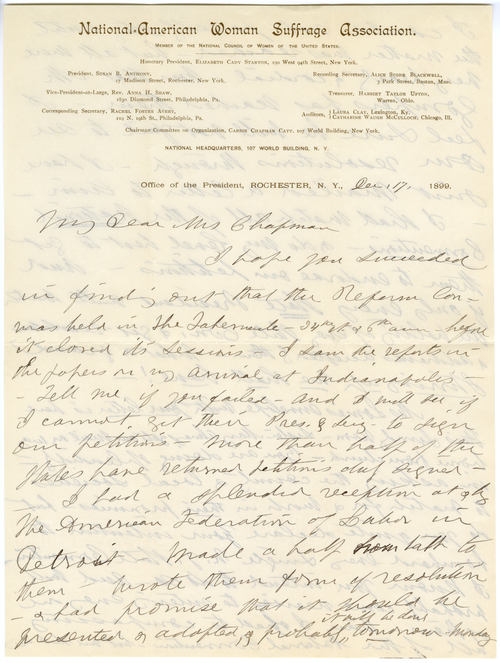 National-American Woman Suffrage Association.
MEMBER OF THE NATIONAL COUNCIL OF WOMEN OF THE UNITED STATES.
Honorary President, ELIZABETH CADY STANTON, 250 West 94th Street, New York.
President, SUSAN B. ANTHONY,
17 Madison Street, Rochester, New York.
Recording Secretary, ALICE STONE BLACKWELL,
3 Park Street, Boston, Mass.
Vice-President-at-Large, REV. ANNA H. SHAW,
1830 Diamond Street, Philadelphia, Pa.
Treasurer, HARRIET TAYLOR UPTON,
Warren, Ohio.
Corresponding Secretary, RACHEL FOSTER AVERY,
N. 19th St., Philadelphia, Pa.
Auditors, { LAURA CLAY, Lexington, Ky.
CATHARINE WAUGH McCULLOCH, Chicago, Ill.
Chairman Committee on Organization, CARRIE CHAPMAN CATT, 107 World Building, New York.
NATIONAL HEADQUARTERS, 107 WORLD BUILDING, N. Y.
Office of the President, ROCHESTER, N. Y., Dec 17, 1899.
My Dear Mrs Chapman
I hope you succeeded
in finding out that the Reform Con-
was held in the Tabernacle - before
it closed its sessions - I saw the reports in
the papers on my arrival at Indianapolis -
- Tell me, if you failed - and I will see if
I cannot get their Pres. & Secy to sign
our petitions - More than half of the
States have returned petitions duly signed -
- I had a splendid reception at & by
The American Federation of Labor in
Detroit Made a half hour talk to
them wrote them form of resolution
- & had promise that it should be
presented & adopted, & probably it will be done tomorrow Monday